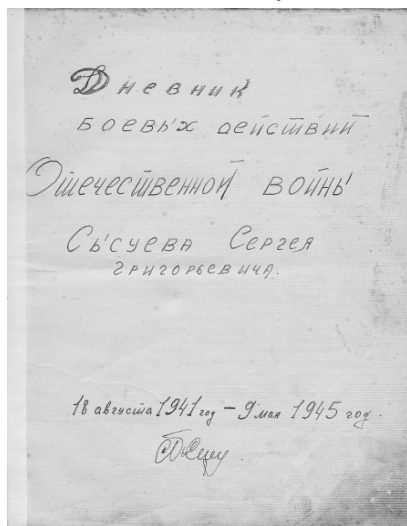 Дневник
боевых действий
Отечественной войны
Сысуева Сергея
Григорьевича.
18 августа 1941 год – 9 мая 1945 год.